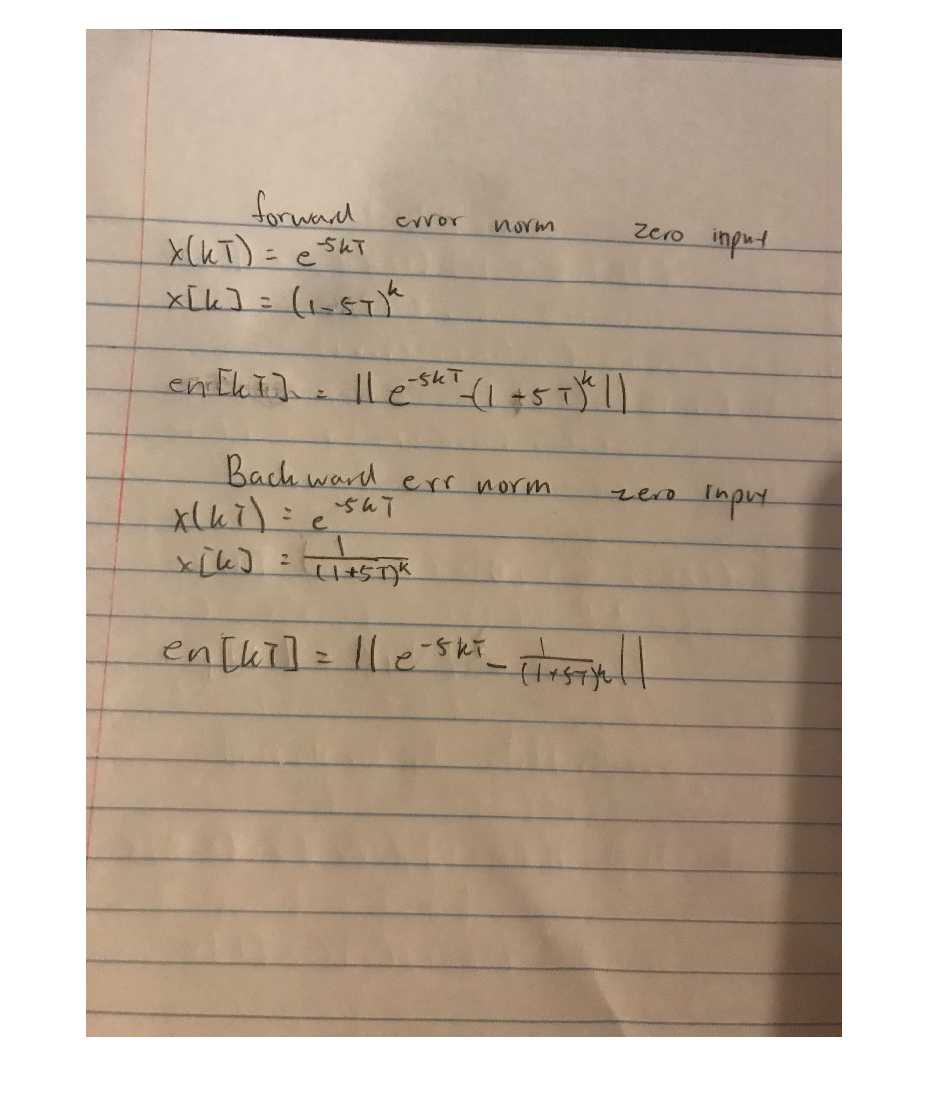 forward error norm zero input
x(kT) = e^-5kT
x[k] = (1-5T)^k
en[kT] = ||e^-5kT-(1+5T)^k||
Backward err norm zero input
x(kT) = e^-5kT
x[k] = 1/(1+5T)^k
en[kT] = ||e^-5kT - 1/(1+5T)^k||